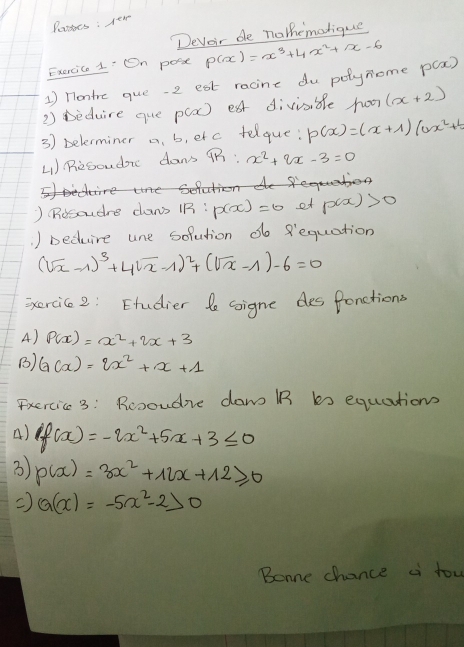 Passes : 1ere
Devoir de Mathématique
Exercice 1 : On pose p(x) = x³+4x²+x-6
1) Montre que -2 est racine du polynôme p(x)
2) Déduire que p(x) est divisible par (x+2)
3) Determiner a, b, et c telque : p(x)=(x+1)(ax²+b
4) Résoudre dans IR : x²+2x-3=0
5) Déduire une solution de l'equation
) Résoudre dans IR : p(x)=0 et p(x)>0
.) Deduire une solution de l'equation
(√x -1)³+4(√x-1)²+(√x-1)-6=0
Exercice 2 : Etudier le signe des fonctions
A) P(x) = x²+2x+3
B) G(x) = 2x²+x+1
Exercice 3 : Resoudre dans IR les equations
A) f(x) = -2x²+5x+3≤0
B) p(x) = 3x²+12x+12≥0
C) G(x) = -5x²-2>0
Bonne chance à tou